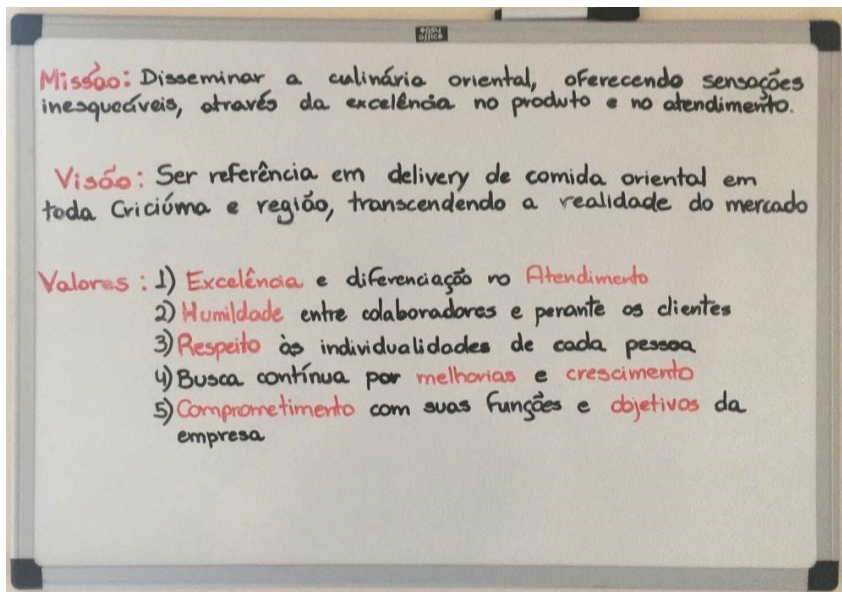 easy office
Missão: Disseminar a culinária oriental, oferecendo sensações
inesquecíveis, através da excelência no produto e no atendimento.
Visão: Ser referência em delivery de comida oriental em
toda Criciúma e região, transcendendo a realidade do mercado
Valores: 1) Excelência e diferenciação no Atendimento
2) Humildade entre colaboradores e perante os clientes
3) Respeito às individualidades de cada pessoa
4) Busca contínua por melhorias e crescimento
5) Comprometimento com suas funções e objetivos da
empresa